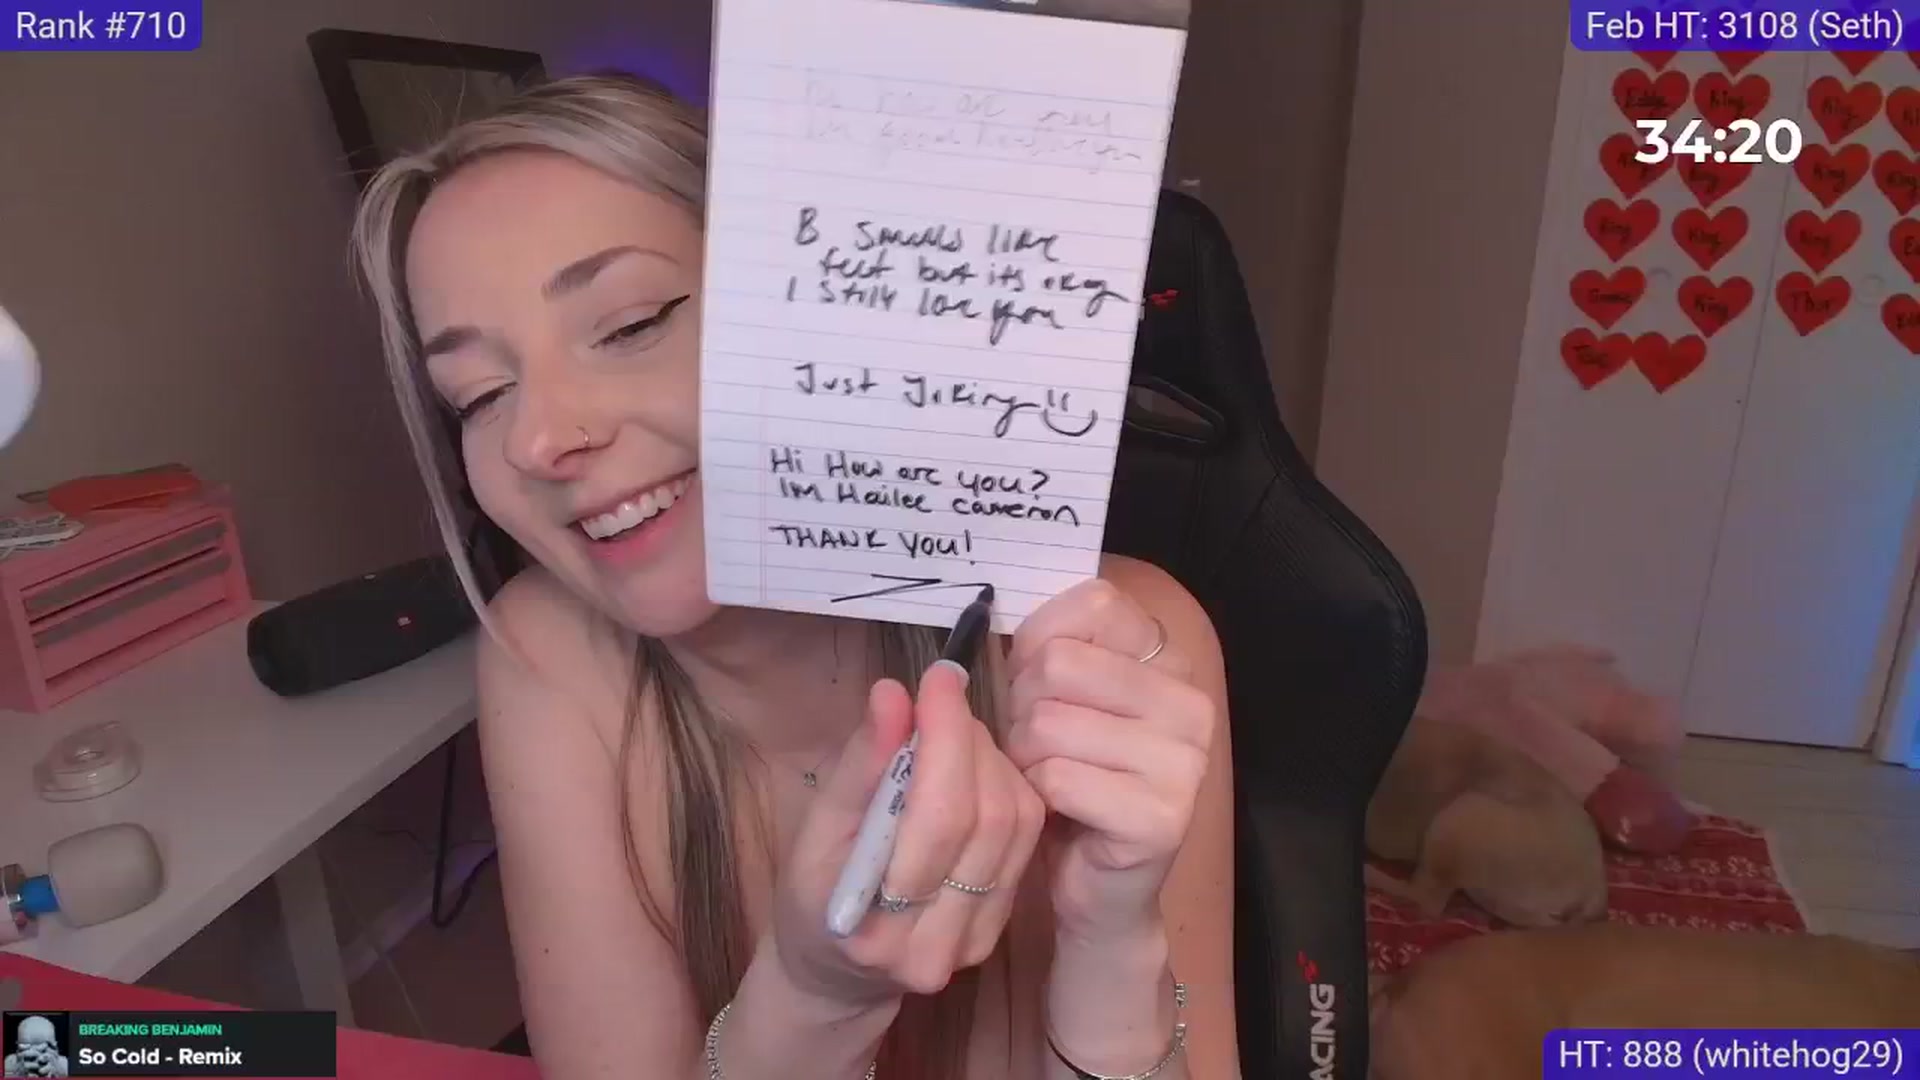 Rank #710
Feb HT: 3108 (Seth)
34:20
B smells like
feet but its okay
I still love you
Just Joking
Hi How are you?
Im Hailee cameron
THANK YOU!
Eddie King King
King
King King King
King Thor
RACING
BREAKING BENJAMIN
So Cold - Remix
HT: 888 (whitehog29)